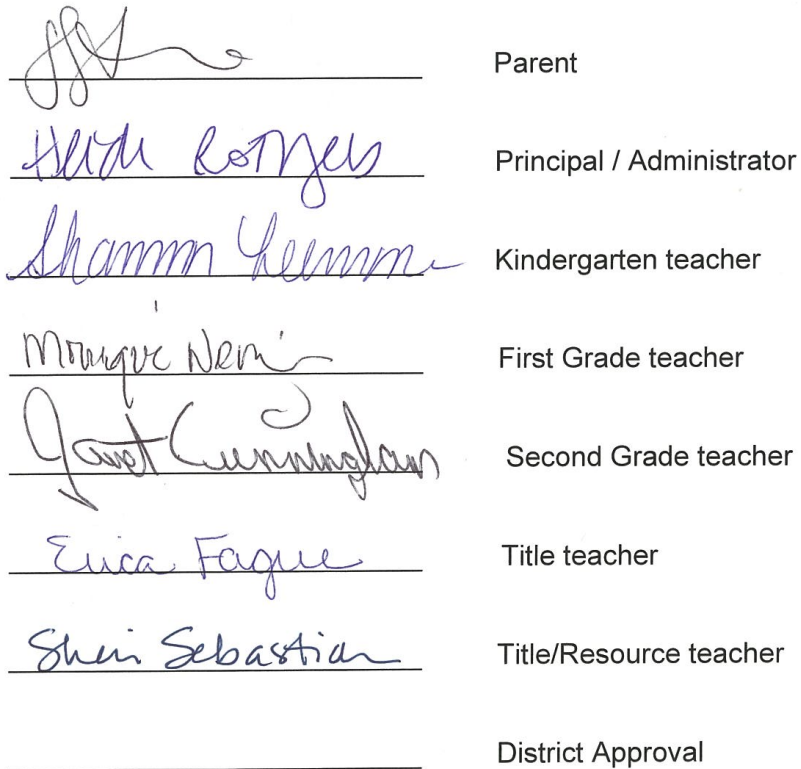 Parent
Heidi Rottgers Principal / Administrator
Shannon Kindergarten teacher
Monique First Grade teacher
Janet Cunningham Second Grade teacher
Erica Fague Title teacher
Sheri Sebastian Title/Resource teacher
District Approval